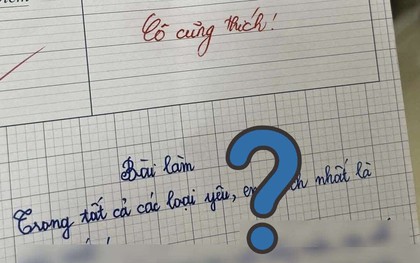 Cô cũng thích!
Bài làm
Trong tất cả các loại yêu, em nhất là